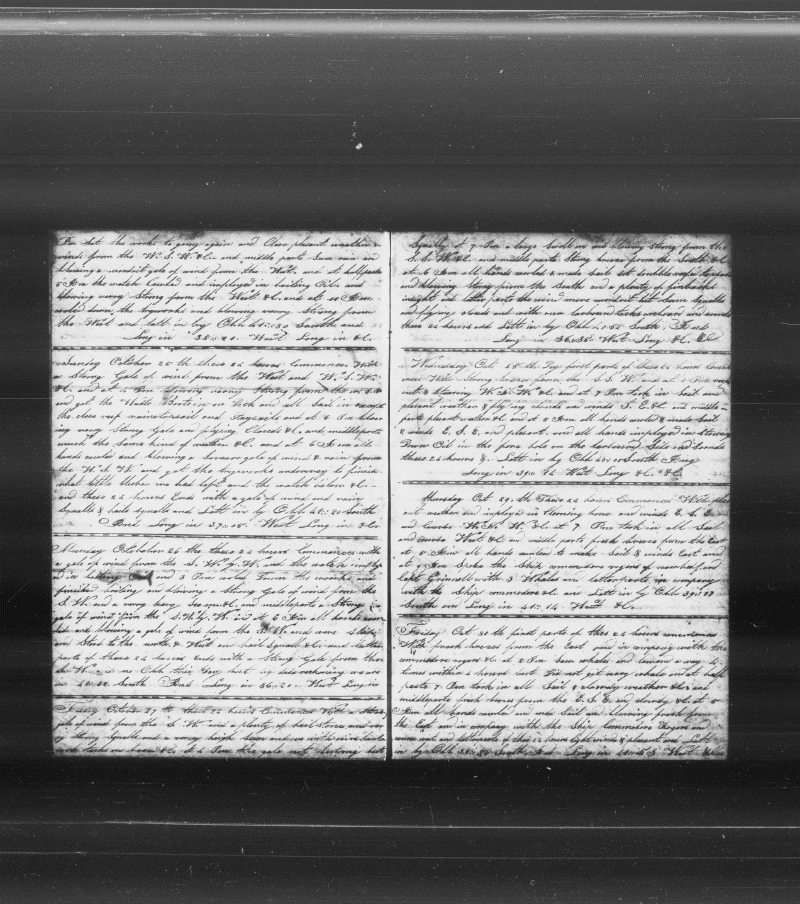 Pm Set the works to going again and Clear plesent weather &
winds from the W. S. W. &c and middle parts Sum rain and
blowing a moderit gale of wind from the West and at halfpast
5 Am the watch Couled and imployed in boiling Oile and
blowing very Strong from the West &c and at 10 Am
cooled down the tryworks and blowing very Strong from
the West and Latt in by Obb 41:30 South and
Long in 38:20 West Long in &c.
Sunday October 25 th these 24 hours Commences With
a Strong Gale of wind from the West and W. S. W.
&c and at 1 Pm blowing very Strong from the
and got the Waste Boats in on Deck and all Sail in except
the close reef maintopsail and Staysails and at 6 Pm blow
ing very Strong Gale and flying Clouds &c and middleparts
much the same kind of wether &c and at 6 Am all
hands couled and blowing a Severe gale of wind & rain from
the W. S. W. and got the tryworks underway to finish
what little bluber we had left and the watch below &c
and these 24 hours Ends with a gale of wind and rain
Squalls & hail squalls and Latt in by Obb 41:20 South
Bred Long in 37:05 West Long in &c
Monday October 26 the these 24 hours Commences with
a gale of wind from the S. W. by W. and the watch imploy
ed in boiling and 3 Pm coled Down the works and
finished boiling and blowing a Strong Gale of wind from the
S. W. and a very heavy Sea on &c and middleparts a Strong
gale of wind from the S. W. by W. and at 6 Am all hands coul
led and blowing a gale of wind from the S. W. and wore Ship
and Stood to the north & West and hail Squalls &c and latter
parts of these 24 hours Ends with a Strong Gale from the
S. W. and no Obb this Day but by dead reckoning we are
in South Bred Long in 36:20 West Long in
Tuesday October 27 th these 24 hours Commences With a Strong
gale of wind from the S. W. and a plenty of hail stones and ver
ry Strong Squalls and a very heigh Sean and us with nine boats
on deck on bore &c at 4 Pm the gale not bestrong but
Squally at 7 Pm a large Swell on and blowing strong from the
S. S. W. &c and middle parts Strong breeze from the South &c
at 6 Am all hands couled & make Sail Set doublereef topsails
and blowing Strong from the South and a plenty of finbacks
insight and latter parts the wind more modorit but Sum Squalls
and flying clouds and with our larboard tacks onboard and ends
these 24 hours and Latt in by Obb 40:54 South Bred
Long in 36:35 West Long &c &c
Wensday Oct 28 th The first parts of these 24 hours Comen
ces With Strong breeze from the S. S. W. and at 1 Pm wore
out & Stearing W. N. W. &c and at 7 Pm Took in Sail and
plesant weather & flying clouds and winds S. E. &c and middle
parts plesant wether &c and at 6 Am all hands couled & made Sail
& winds E. S. E. and plesant and all hands imployed in Stowing
Down Oil in the fore hole on the larboard Side and Ends
these 24 hours &. Latt in by Obb South Breg
Long in 39:14 West Long &c &c
Thursday Oct 29 th These 24 hours Commences With ples
ent wether and imployed in Cleaning bone and winds E. S. E.
and Course W. N. W. &c at 7 Pm took in all Sail
and course West &c and middle parts fresh breeze from the East
at 6 Am all hands couled to make Sail & winds East and
at 9 Am Spoke the Ship commodore rogers of newbedford
Capt Grinnell with 3 Whales and latterparts in company
with the Ship commodore &c and Latt in by Obb 39:57
South and Long in 41:14 West &c.
Friday Oct 30 th first parts of these 24 hours commences
With freash breeze from the East and in company with the
commodore rogers &c at 2 Pm Saw whales and lowered a way 4
times within 4 hours but Did not get eny whale and at half
parts 7 Pm took in all Sail & clowdy weather &c and
middleparts fresh breeze from the E. S. E. and clowdy &c at 6
Am all hands couled and made Sail and blowing fresh from
the East and in company with the Ship Commodore Rogers and
wines out and latterparts of these 24 hours light winds & plesant and Latt
in by Obb South and Long in West &c